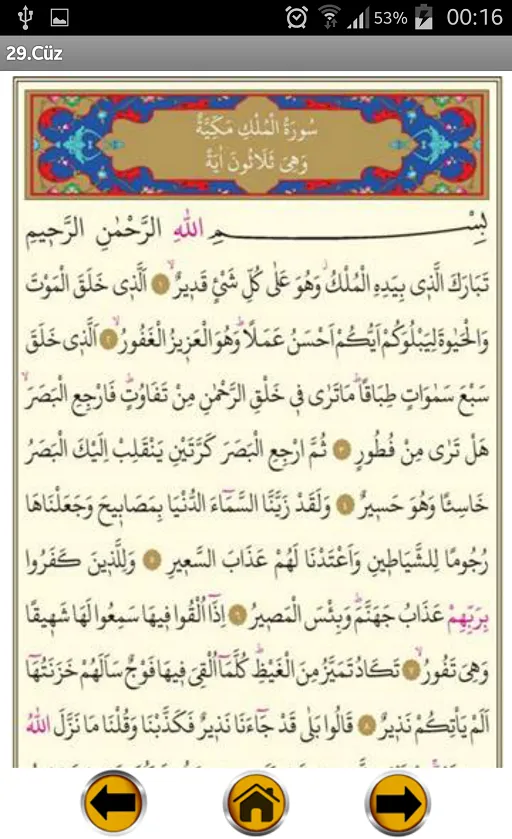 53% 00:16
29.Cüz
سُورَةُ الْمُلْكِ مَكِّيَّةٌ
وَهِىَ ثَلَاثُونَ اٰيَةً
بِسْمِ اللّٰهِ الرَّحْمٰنِ الرَّحٖيمِ
تَبَارَكَ الَّذٖى بِيَدِهِ الْمُلْكُ وَهُوَ عَلٰى كُلِّ شَیْءٍ قَدٖيرٌ ۙ ﴿١﴾ اَلَّذٖى خَلَقَ الْمَوْتَ
وَالْحَيٰوةَ لِيَبْلُوَكُمْ اَيُّكُمْ اَحْسَنُ عَمَلًا ؕ وَهُوَ الْعَزٖيزُ الْغَفُورُ ۙ ﴿٢﴾ اَلَّذٖى خَلَقَ
سَبْعَ سَمٰوَاتٍ طِبَاقًا ؕ مَا تَرٰى فٖى خَلْقِ الرَّحْمٰنِ مِنْ تَفَاوُتٍ ؕ فَارْجِعِ الْبَصَرَ ۙ
هَلْ تَرٰى مِنْ فُطُورٍ ﴿٣﴾ ثُمَّ ارْجِعِ الْبَصَرَ كَرَّتَيْنِ يَنْقَلِبْ اِلَيْكَ الْبَصَرُ
خَاسِئًا وَهُوَ حَسٖيرٌ ﴿٤﴾ وَلَقَدْ زَيَّنَّا السَّمَٓاءَ الدُّنْيَا بِمَصَابٖيحَ وَجَعَلْنَاهَا
رُجُومًا لِلشَّيَاطٖينِ وَاَعْتَدْنَا لَهُمْ عَذَابَ السَّعٖيرِ ﴿٥﴾ وَلِلَّذٖينَ كَفَرُوا
بِرَبِّهِمْ عَذَابُ جَهَنَّمَ ؕ وَبِئْسَ الْمَصٖيرُ ﴿٦﴾ اِذَٓا اُلْقُوا فٖيهَا سَمِعُوا لَهَا شَهٖيقًا
وَهِىَ تَفُورُ ۙ ﴿٧﴾ تَكَادُ تَمَيَّزُ مِنَ الْغَيْظِ ؕ كُلَّمَٓا اُلْقِىَ فٖيهَا فَوْجٌ سَاَلَهُمْ خَزَنَتُهَٓا
اَلَمْ يَاْتِكُمْ نَذٖيرٌ ﴿٨﴾ قَالُوا بَلٰى قَدْ جَٓاءَنَا نَذٖيرٌ فَكَذَّبْنَا وَقُلْنَا مَا نَزَّلَ اللّٰهُ